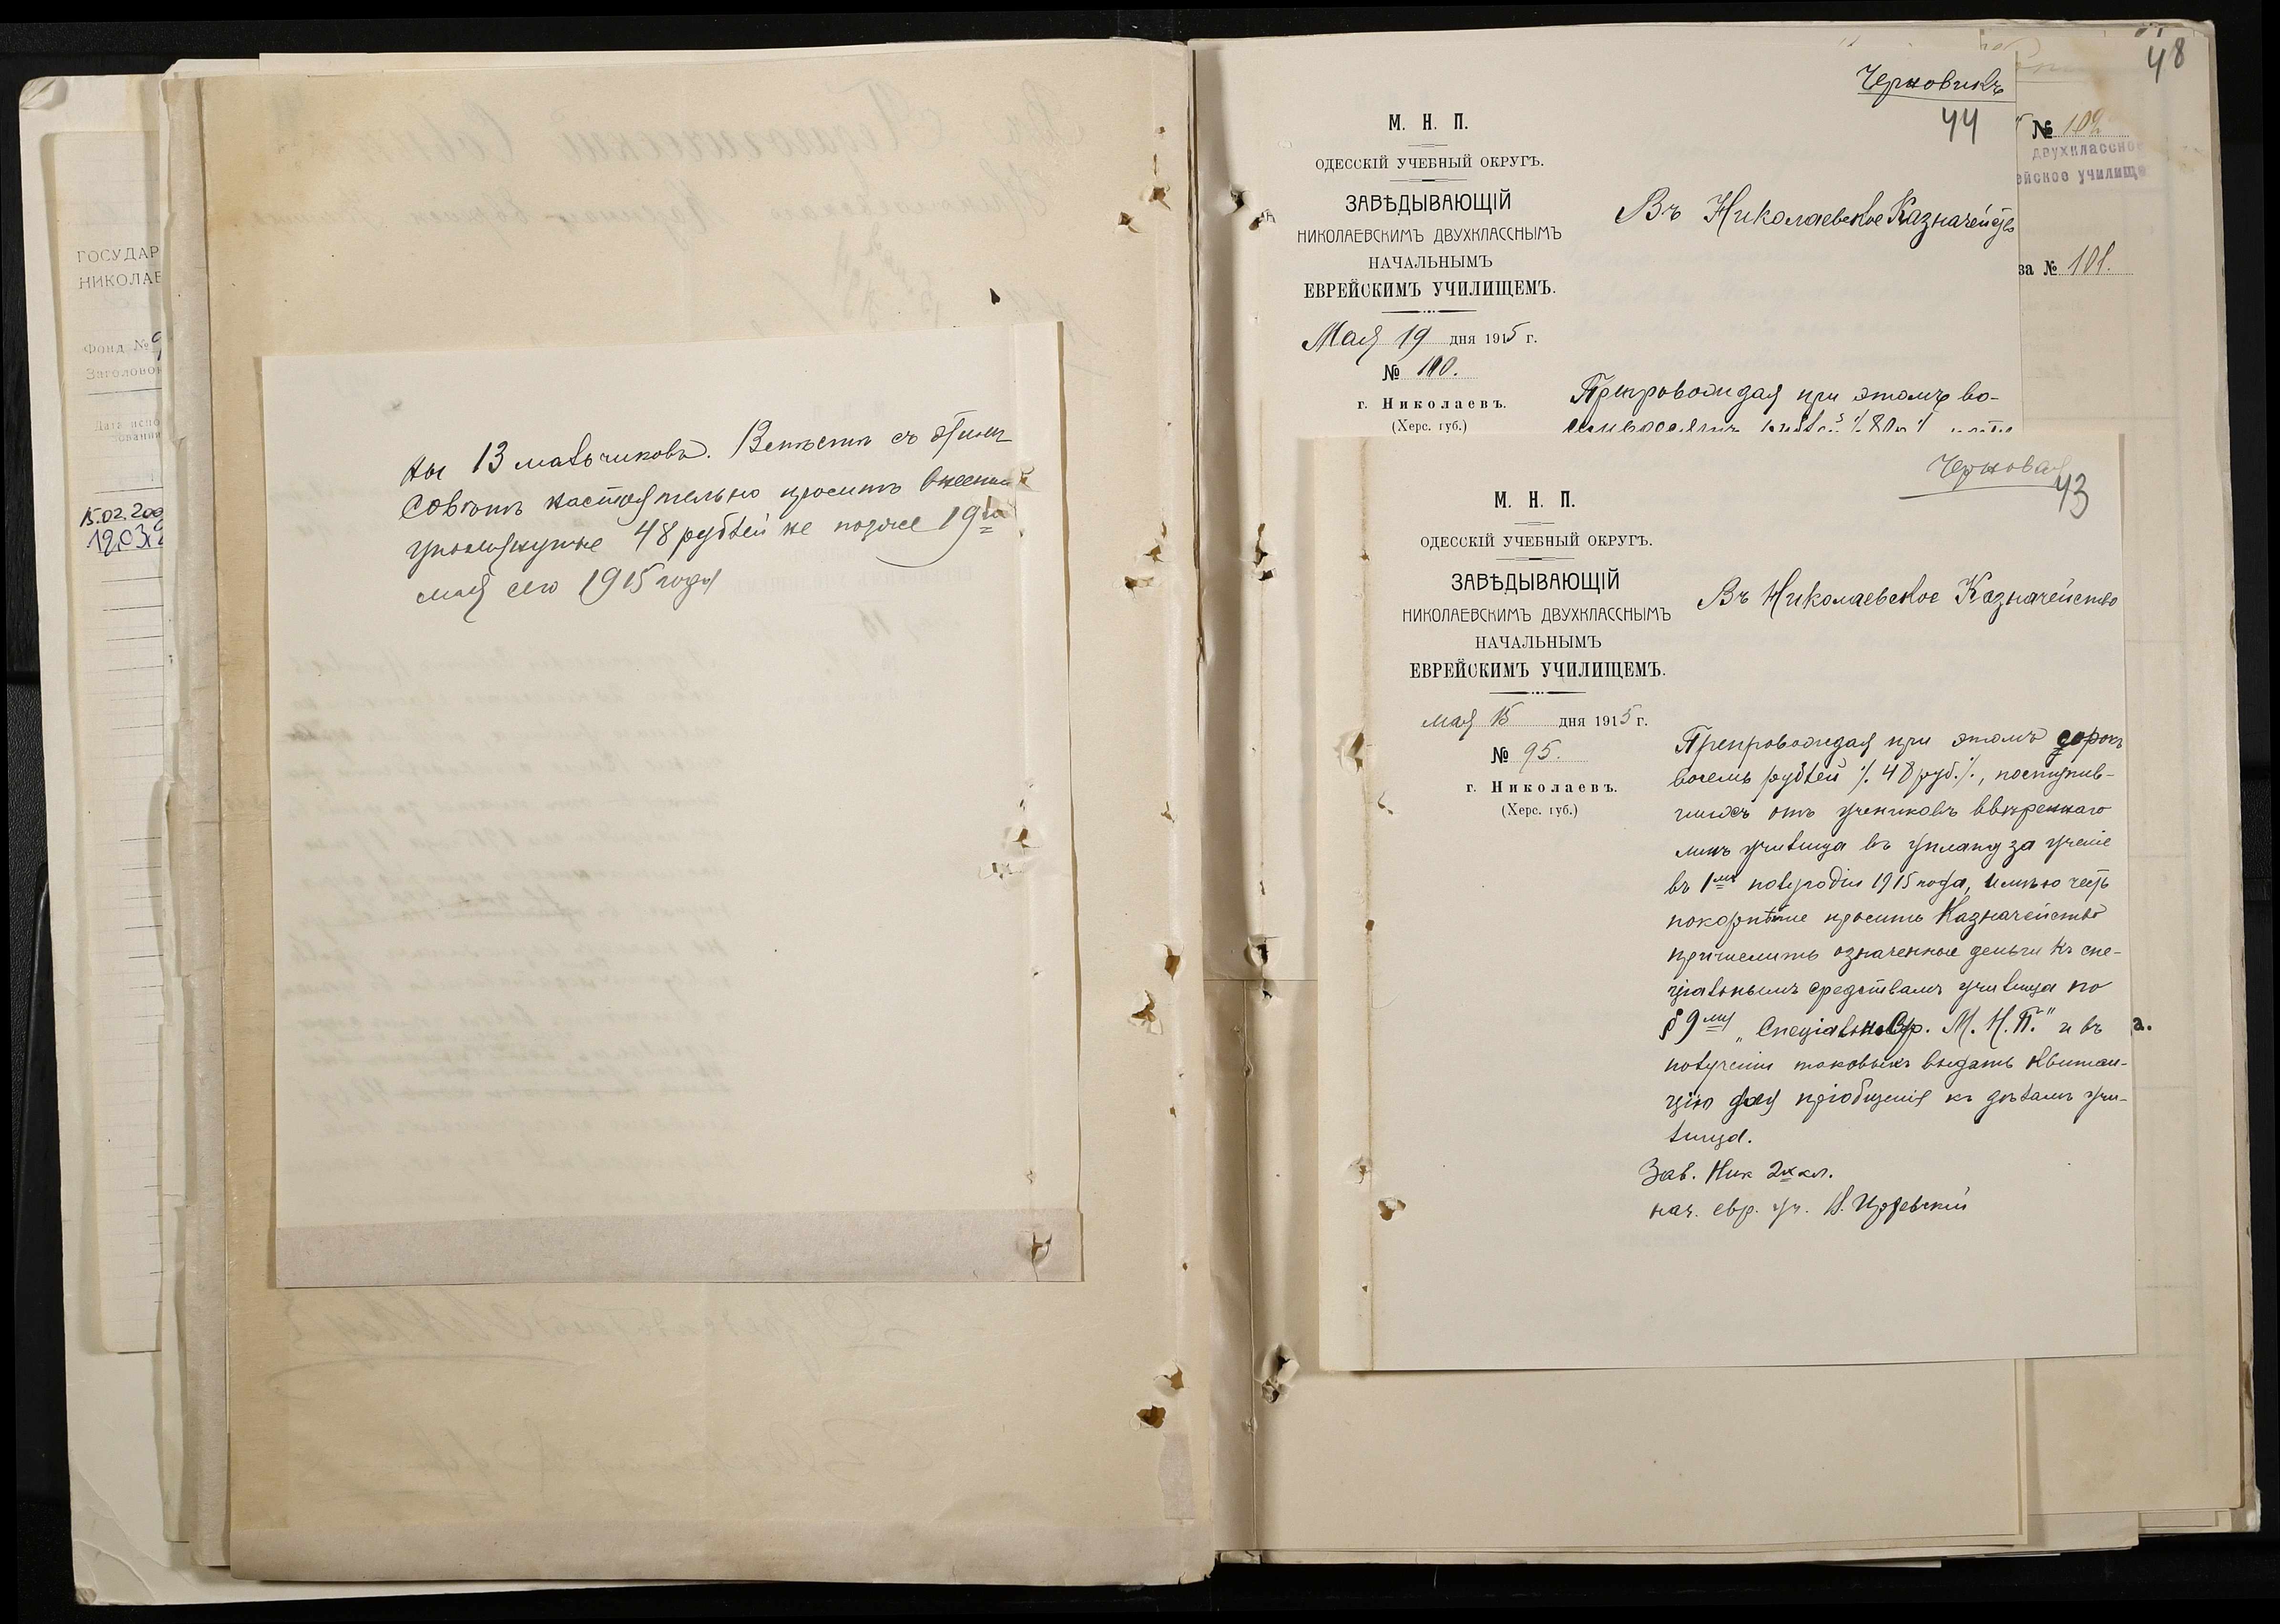 ГОСУДАР
НИКОЛАЕ
Фонд №
Заголово
Дата испо
зовани
15.02.200
12.03.2
ны 13 мальчиковъ. Вместѣ съ этимъ
Совѣтъ настоятельно проситъ внести
упомянутые 48 рублей не позже 19го
мая сего 1915 года
48
№ 102
двухклассно
ейское училище
за № 101.
Черновикъ
44
М. Н. П.
ОДЕССКІЙ УЧЕБНЫЙ ОКРУГЪ.
ЗАВѢДЫВАЮЩІЙ
НИКОЛАЕВСКИМЪ ДВУХКЛАССНЫМЪ
НАЧАЛЬНЫМЪ
ЕВРЕЙСКИМЪ УЧИЛИЩЕМЪ.
Мая 19 дня 1915 г.
№ 100.
г. Николаевъ.
(Херс. губ.)
Въ Николаевское Казначейство
Препровождая при этомъ во-
Черновая
43
М. Н. П.
ОДЕССКІЙ УЧЕБНЫЙ ОКРУГЪ.
ЗАВѢДЫВАЮЩІЙ
НИКОЛАЕВСКИМЪ ДВУХКЛАССНЫМЪ
НАЧАЛЬНЫМЪ
ЕВРЕЙСКИМЪ УЧИЛИЩЕМЪ.
мая 15 дня 1915 г.
№ 95.
г. Николаевъ.
(Херс. губ.)
Въ Николаевское Казначейство
Препровождая при этомъ сорокъ
восемь рублей ·/. 48 руб. ·/., поступив-
шихъ отъ учениковъ ввѣреннаго
мнѣ училища въ уплату за ученіе
въ 1мъ полугодіи 1915 года, имѣю честь
покорнѣйше просить Казначейство
причислить означенныя деньги къ спе-
ціальнымъ средствамъ училища по
§ 9му „Спеціальн. Ср. М. Н. П." и въ
полученіи таковыхъ выдать квитан-
цію для пріобщенія къ дѣламъ учи-
лища.
Зав. Ник 2хкл.
нач. евр. уч.
а.